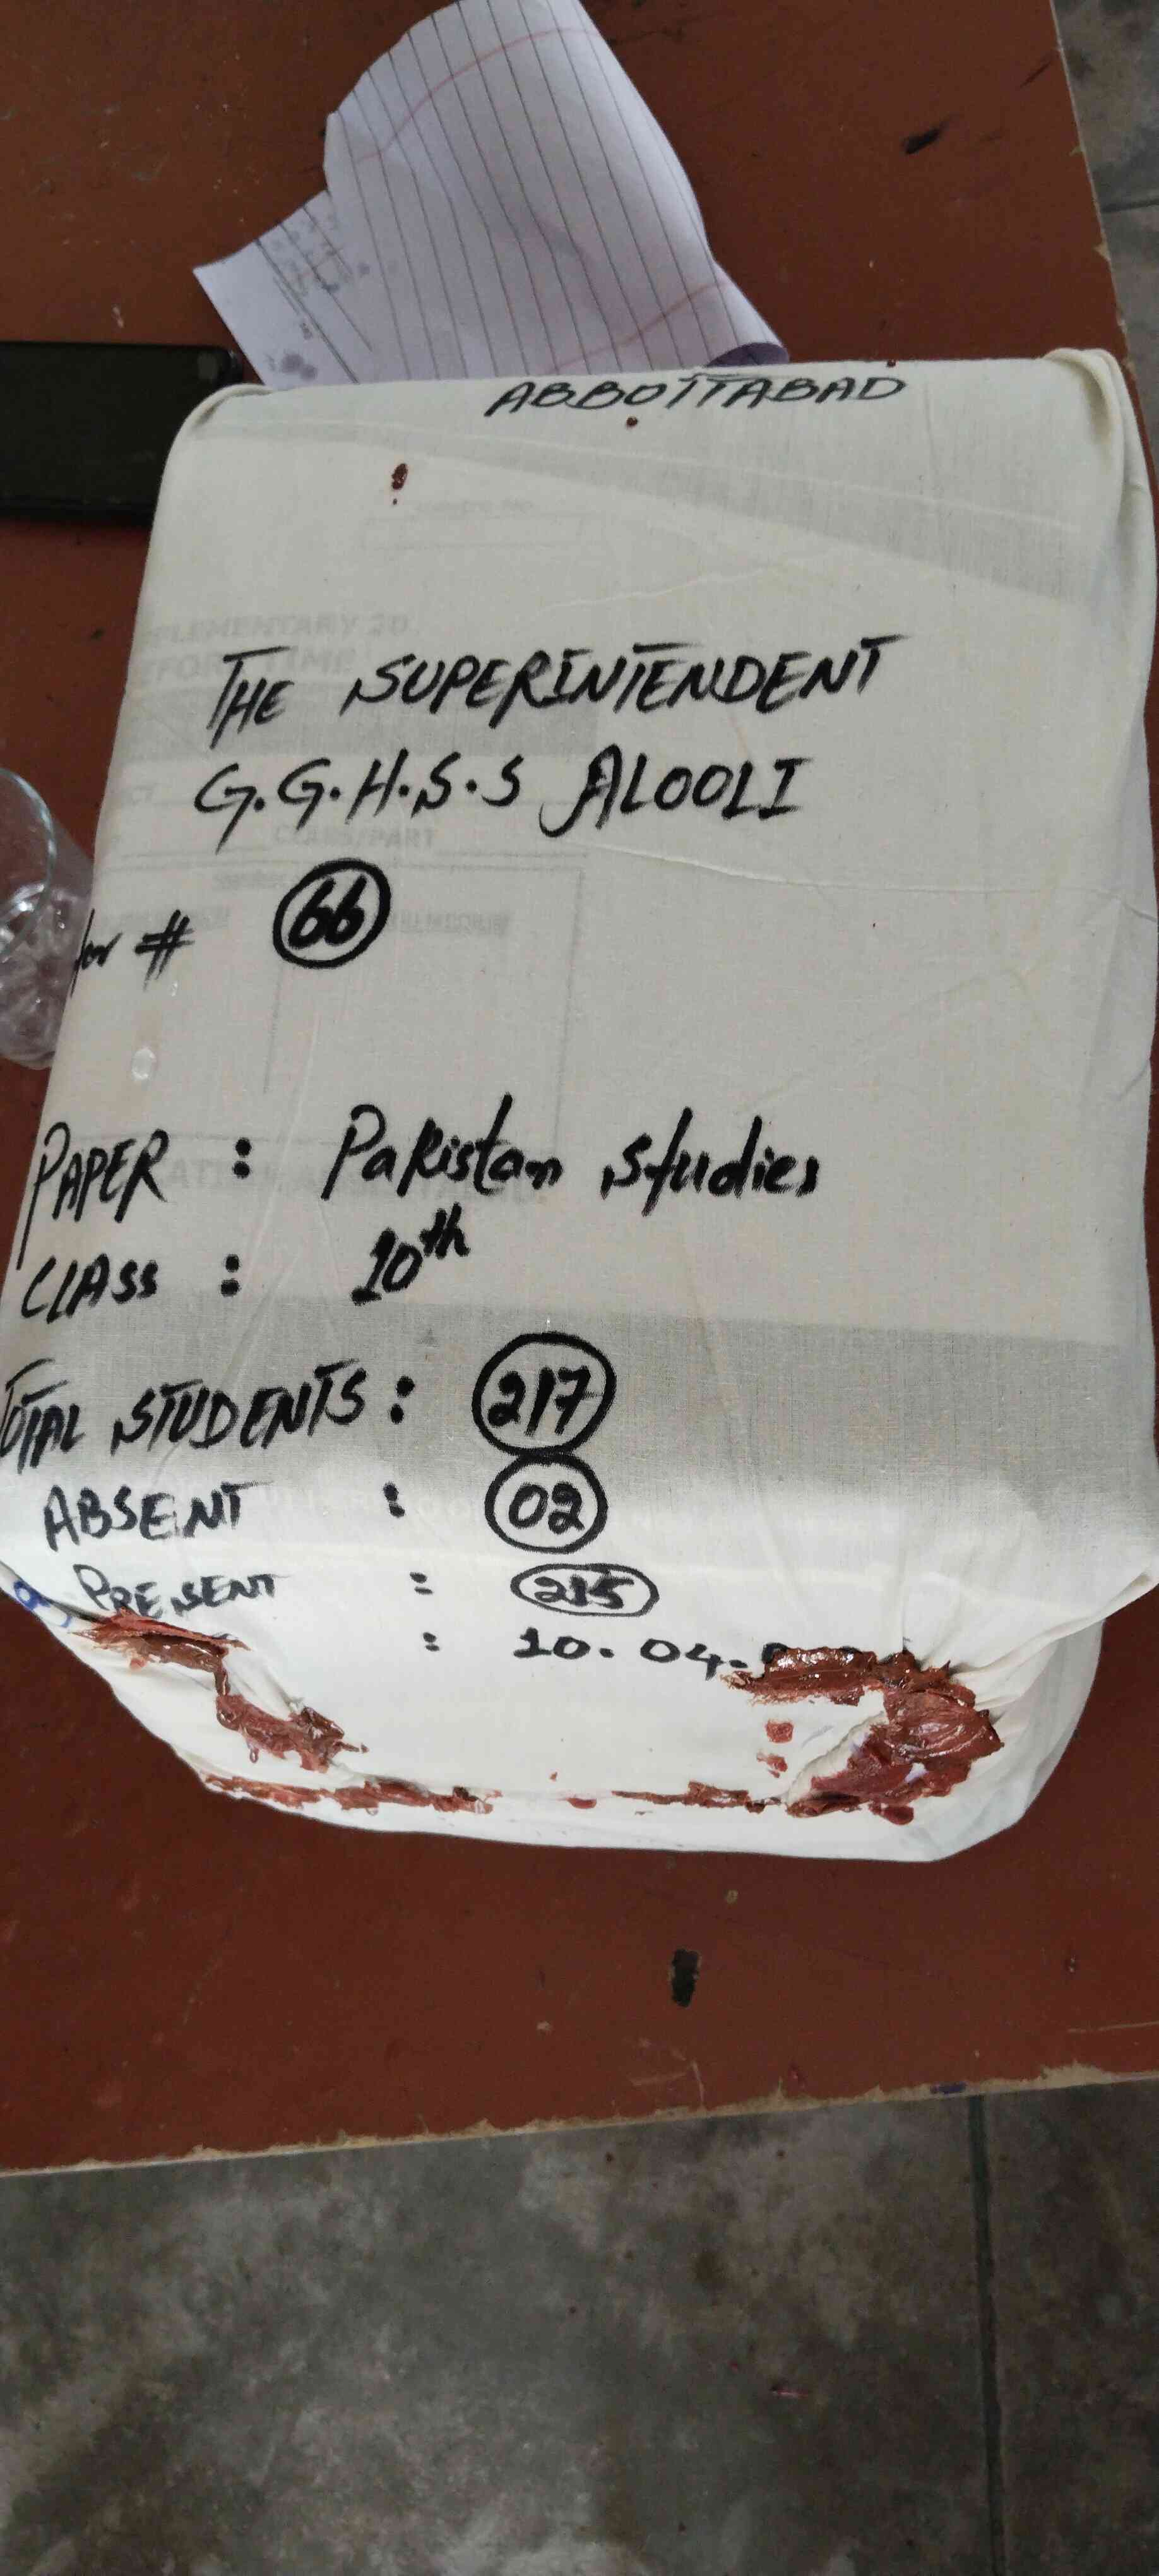 ABBOTTABAD
THE SUPERINTENDENT
G.G.H.S.S ALOOLI
for # 66
PAPER : Pakistan studies
CLASS : 10th
TOTAL STUDENTS : 217
ABSENT : 02
PRESENT : 215
: 10.04.